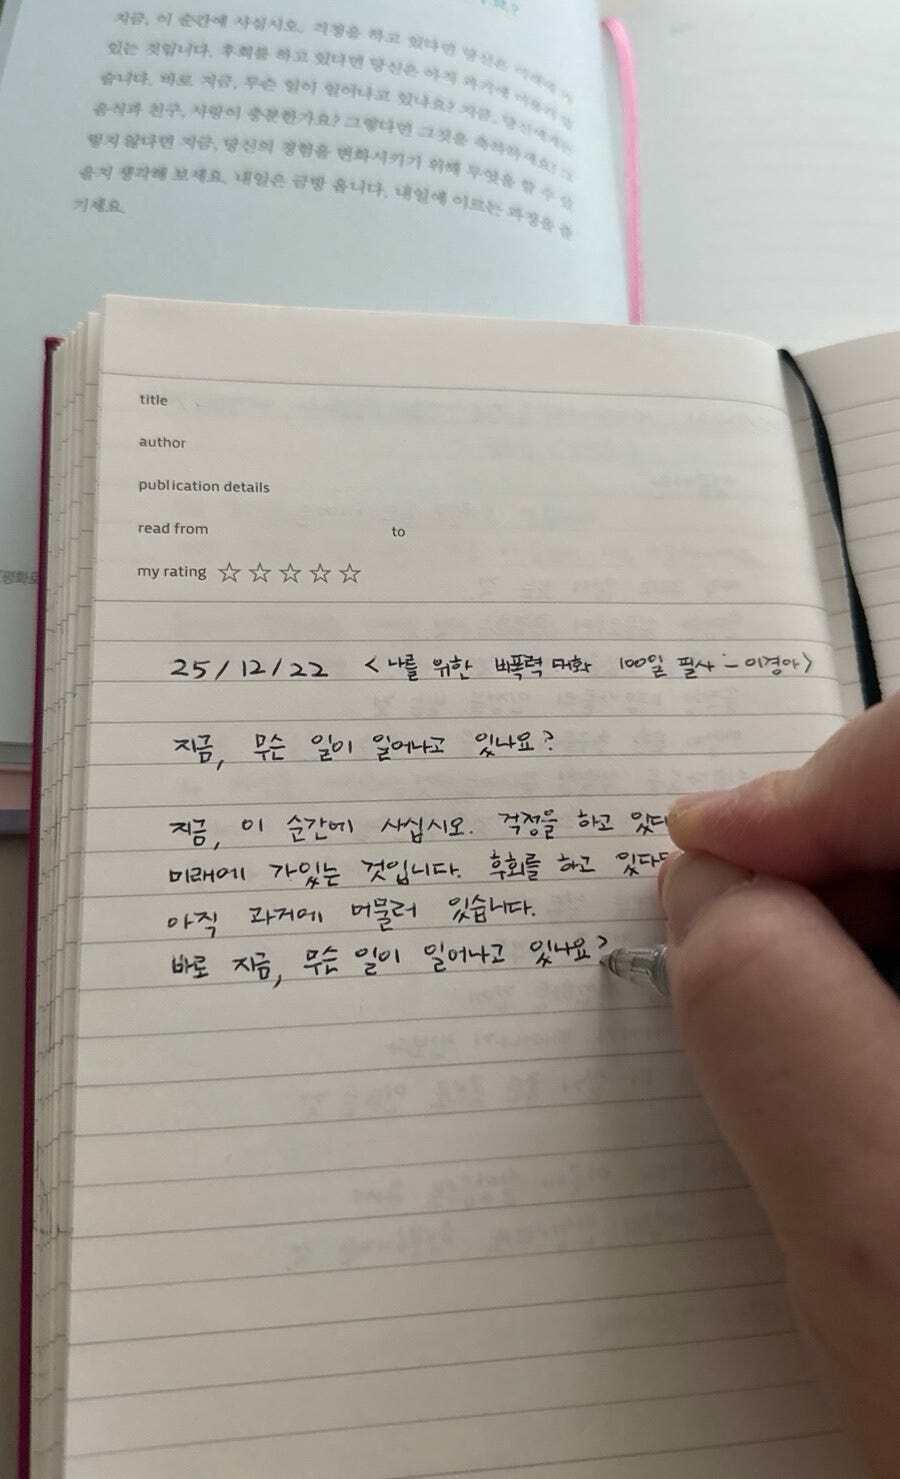 지금, 이 순간에 사십시오. 걱정을 하고 있다면 당신은 미래에 가
있는 것입니다. 후회를 하고 있다면 당신은 아직 과거에 머물러 있
습니다. 바로 지금, 무슨 일이 일어나고 있나요? 지금, 당신에게는
음식과 친구, 사랑이 충분한가요? 그렇다면 그것을 축하하세요! 그
렇지 않다면 지금, 당신의 경험을 변화시키기 위해 무엇을 할 수 있
을지 생각해 보세요. 내일은 금방 옵니다. 내일에 이르는 과정을 즐
기세요.
title
author
publication details
read from to
my rating ☆ ☆ ☆ ☆ ☆
25/12/22 <나를 위한 비폭력 대화 100일 필사 - 이경아>
지금, 무슨 일이 일어나고 있나요?
지금, 이 순간에 사십시오. 걱정을 하고
미래에 가있는 것입니다. 후회를 하고
아직 과거에 머물러 있습니다.
바로 지금, 무슨 일이 일어나고 있나요?